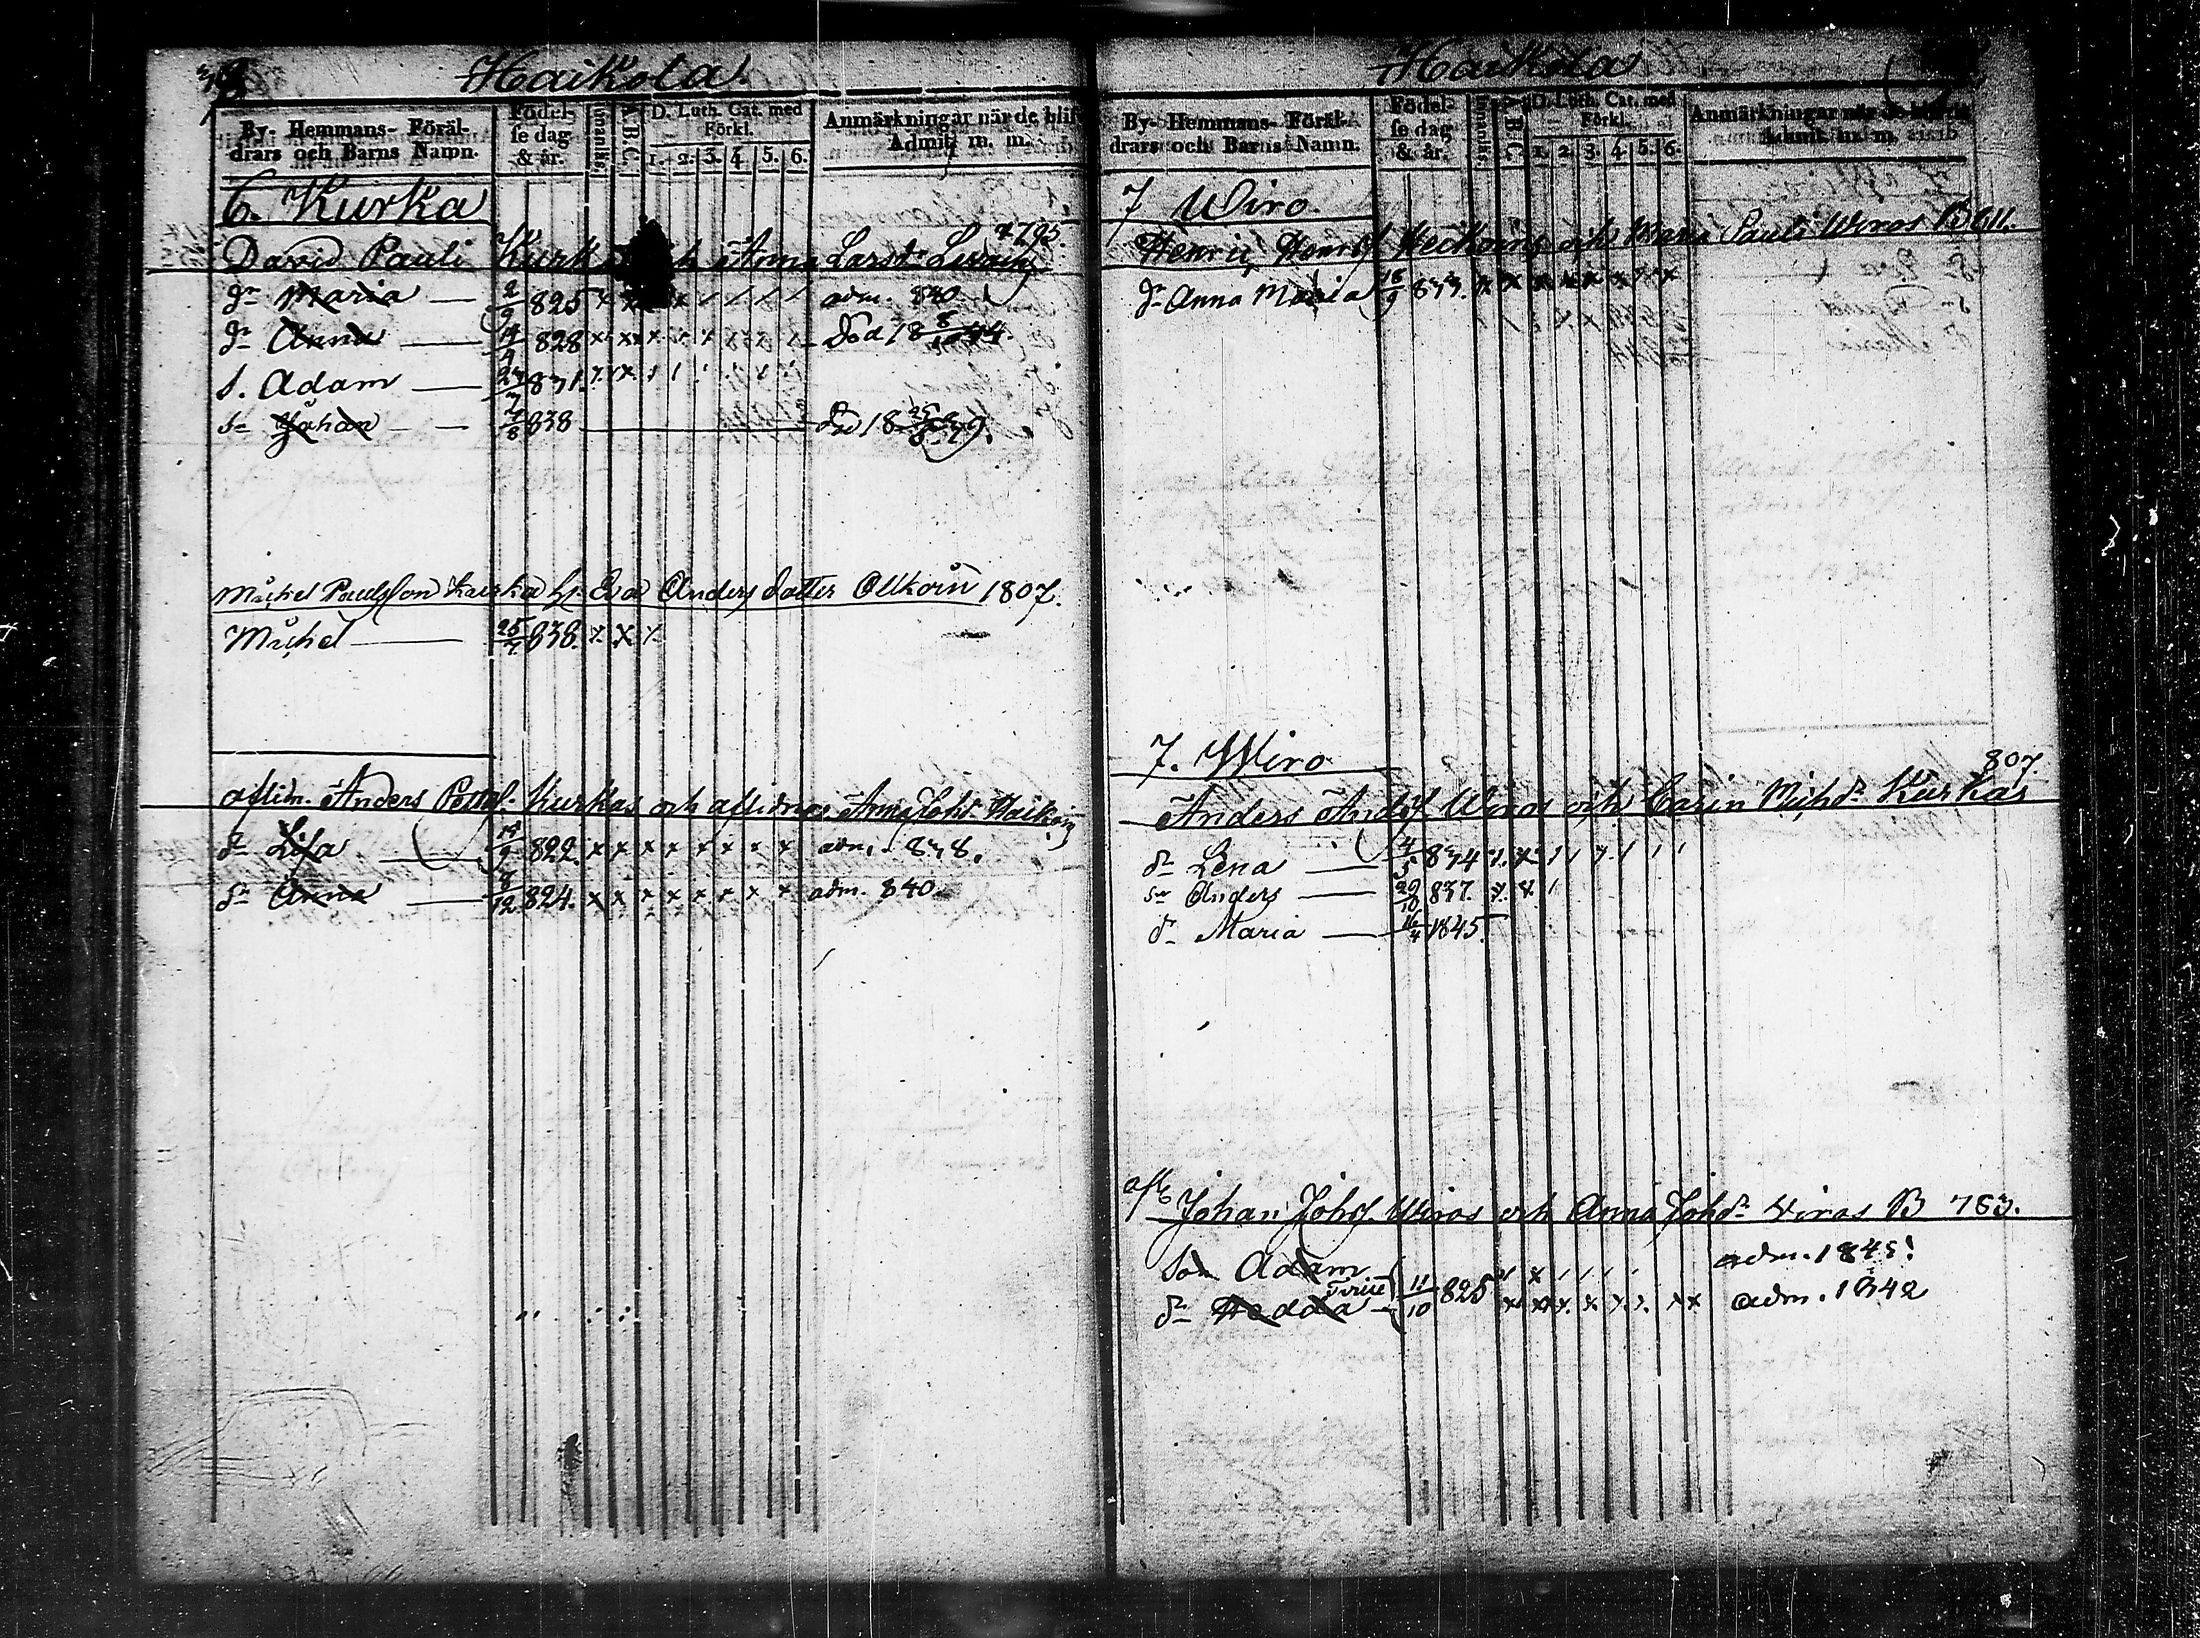 Haikola.
By- Hemmans- Föräl-
drars och Barns Namn.
Födel-
se dag
& år.
Innanläs.
A.B.C.
D. Luth. Cat. med
Förkl.
1. 2. 3. 4. 5. 6.
Anmärkningar när de blif
Admit. m. m.
6. Kurka
1795.
David Pauli Kurk och Anna Larsdr
dr Maria 2/9 825 x adm. 840
dr Anna 14/4 828 x x x död 18 8/10 44.
s. Adam 831.
sn Johan 7/8 838 död 18 39.
Michel Paulsson Kurka h. Eva Anders dotter Olkoin 1807.
Michel 25/7 838. x x x
aflidn. Anders Petter. Kurkas och aflidnas Anna Johdr Haikoin
dr Lisa 14/9 822. x x x x x x x x adm. 838.
dr Anna 7/12 824. x x x x x x x x adm. 840.
Haikola
By- Hemmans- Föräl-
drars och Barns Namn.
Födel-
se dag
& år.
Innanläs.
A.B.C.
D. Luth. Cat. med
Förkl.
1. 2. 3. 4. 5. 6.
Anmärkningar när de blif
Admit. m. m.
7 Wiro.
Henric Henrs och Maria Pauli Wiros B 811.
dr Anna Maria 18/9 833. x x x x x x x x
7. Wiro
807.
Anders Andsf Wiros och Carin Michdr Kurkas
dr Lena 4/5 834
sn Anders 29/10 837.
dr Maria 16/4 1845.
afl Johan Johsf. Wiros och Anna Johdr Wiros B 783.
Son Adam adm. 1845.
Tvill 11/10 825
dr Hedda adm. 1842